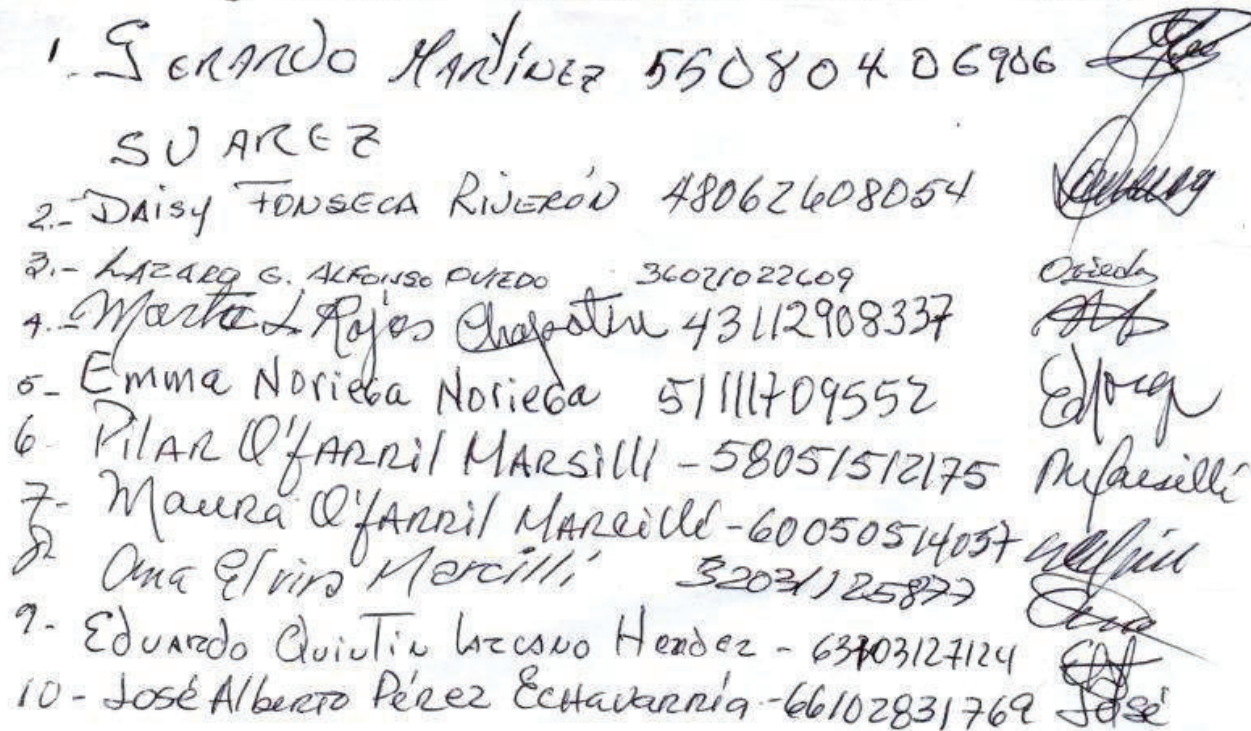 1. GERARDO MARTÍNEZ 55080406906
SUAREZ
2.- DAISY FONSECA RIVERÓN 48062608054
3.- LAZARO G. ALFONSO OVIEDO 36021022609 Oviedo
4.- Marta L Rojas Chapotin 43112908337
5- Emma Noriega Noriega 51111709552
6- PILAR O'fARRil MARSilli - 58051512175
7- Maura O'fARRil MARcilli - 60050514037
8- Ana Elvira Marcilli 32031125877
9- Eduardo Quintin Lazcano Hendez - 63103127124
10- José Alberto Pérez Echavarría - 66102831769 José